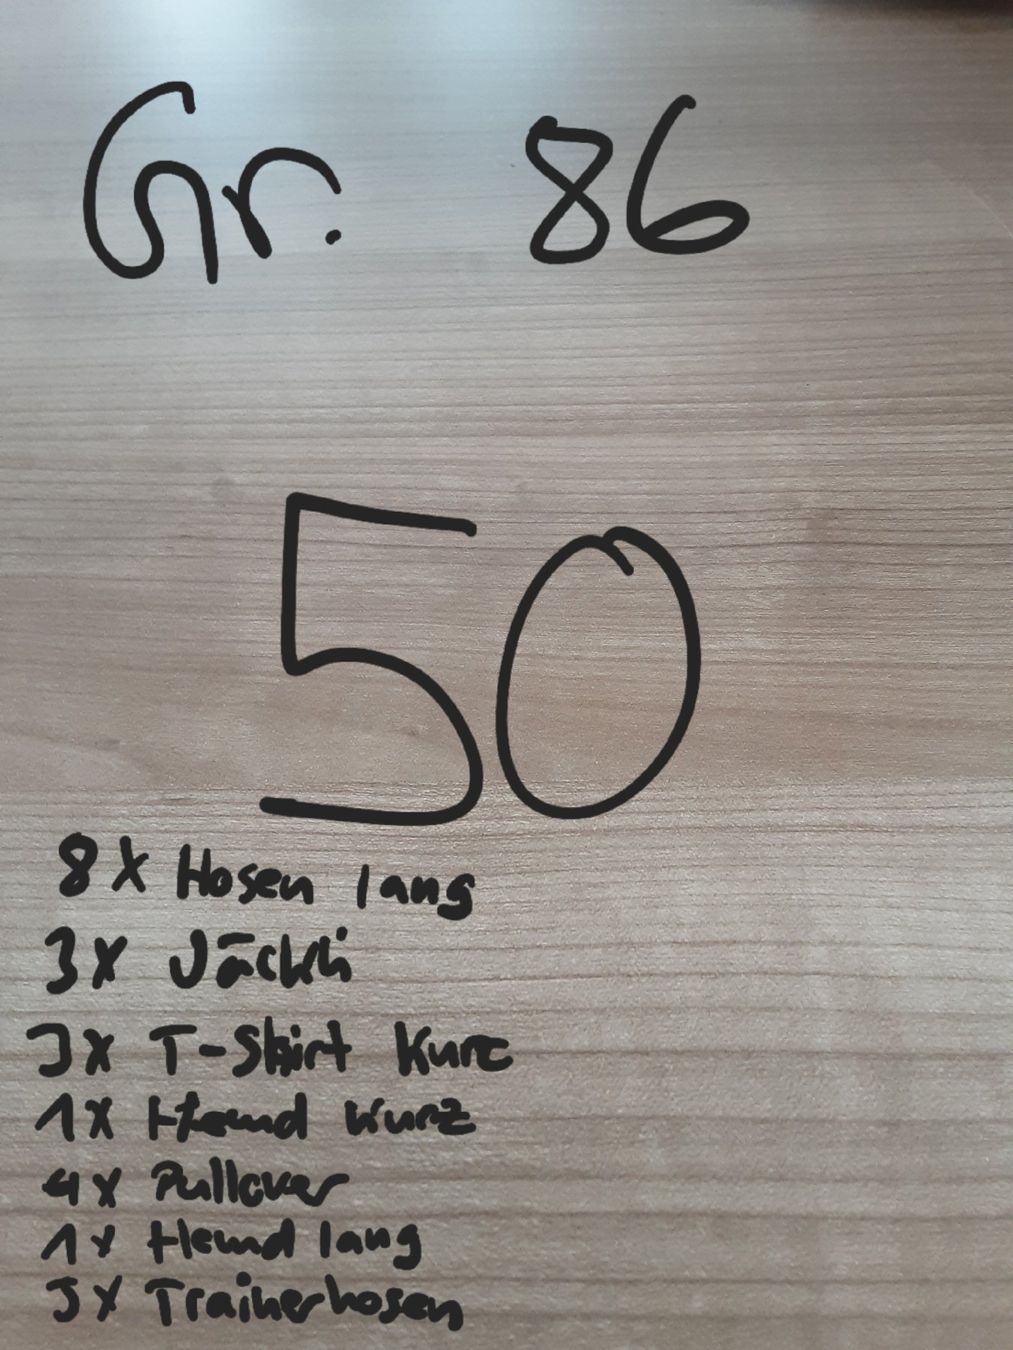 Gr. 86
50
8x Hosen lang
3x Jäckli
3x T-Shirt Kurz
1x Hemd kurz
4x Pullover
1x Hemd lang
3x Trainerhosen